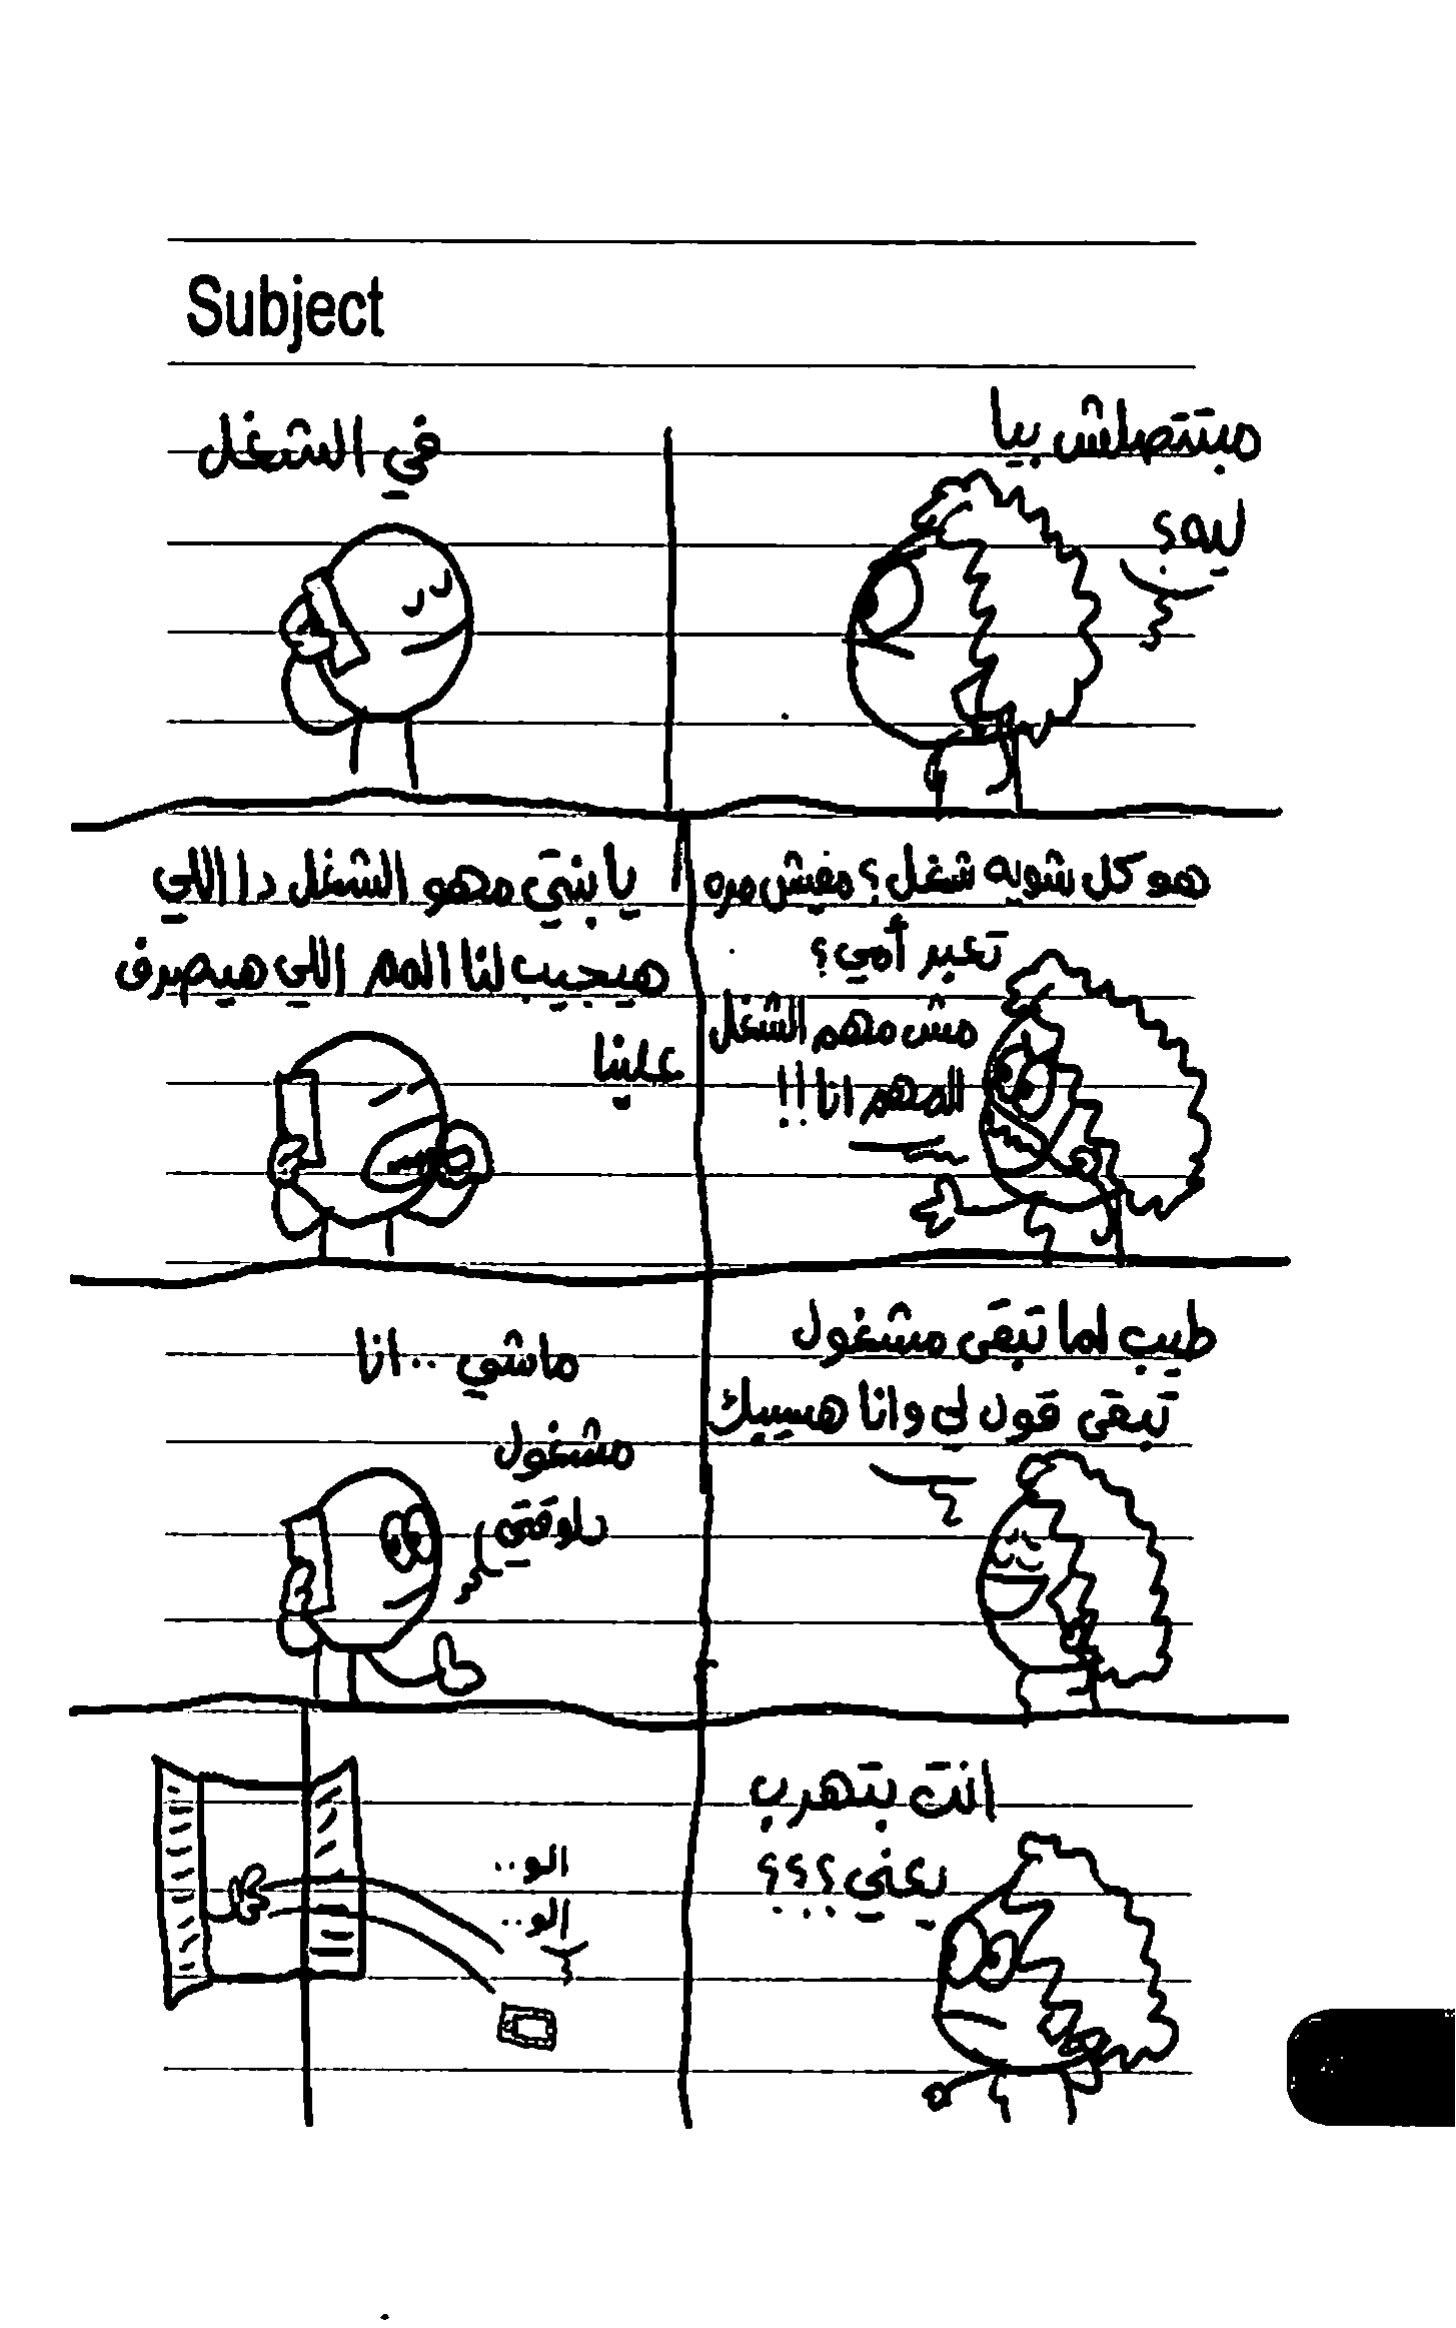 Subject
مبتتصلش بيا
ليه؟
في الشغل
هو كل شويه شغل؟ مفيش مره
تعبر أمي؟
مش مهم الشغل
المهم انا!!
يا بنتي مهو الشغل دا اللي
هيجيب لنا المم اللي هيصرف
علينا
طيب لما تبقى مشغول
تبقى قول لي وانا هسيبك
ماشي .. انا
مشغول
دلوقتي
انت بتهرب
يعني؟؟؟
الو..
الو..